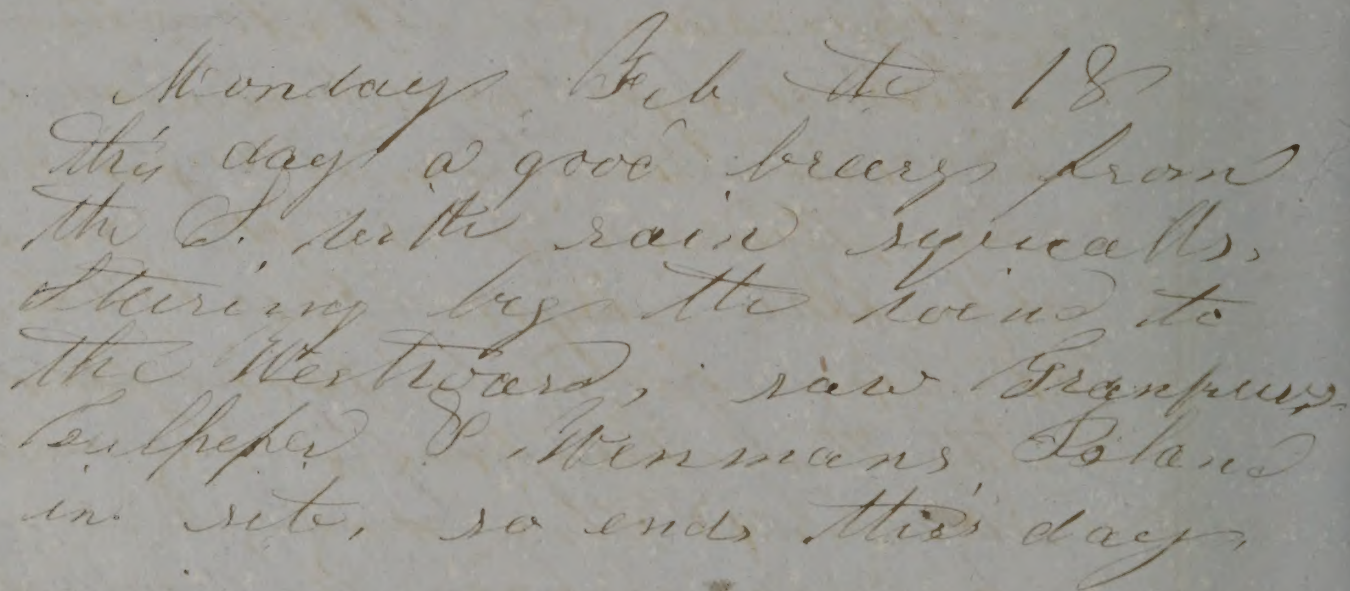 Monday Feb the 18
this day a good breezy from
the S. with rain squalls,
Steering by the wind to
the Westward, saw Grampuses
Culpeper & Wenmans Island
in site, so ends this day,